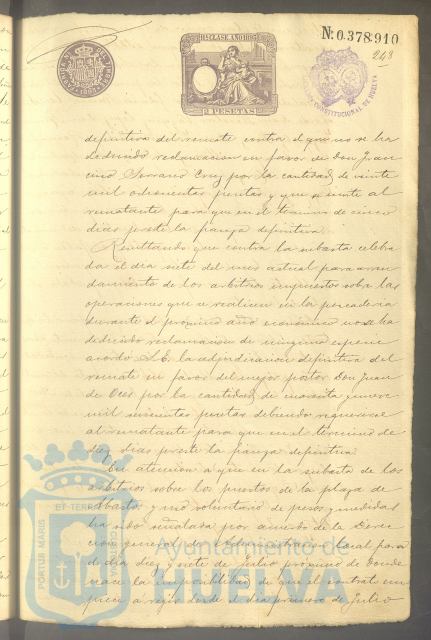 Nº 0.378.910
248
11ª CLASE AÑO 1895
2 PESETAS
CONSTITUCIONAL DE HUELVA
definitiva del remate contra el que no se ha
deducido reclamacion en favor de Don Fran
cisco Serrano Cruz por la cantidad de veinte
mil ochocientas pesetas y que se invite al
rematante para que en el termino de cinco
dias preste la fianza definitiva.
Resultando que contra la subasta celebra
da el dia siete del mes actual para arren
damiento de los arbitrios impuestos sobre las
operaciones que se realicen en la pescaderia
durante el proximo año economico no se ha
deducido reclamacion de ninguna especie
acordó S.E. la adjudicacion definitiva del
remate en favor del mejor postor Don Juan
de Oces por la cantidad de cuarenta y nueve
mil pesetas debiendo requerirse
al rematante para que en el termino de
diez dias preste la fianza definitiva.
En atencion a que en la subasta de los
arbitrios sobre los puestos de la plaza de
Abastos y uso voluntario de pesas y medidas
ha sido señalada por acuerdo de la Direc
cion general de Administracion local para
el dia diez y siete de Julio proximo de donde
nace la imposibilidad de que el contrato em
piece a regir desde el dia primero de Julio
PORTUS MARIS ET TERRAE CUSTODIA
Ayuntamiento de
HUELVA